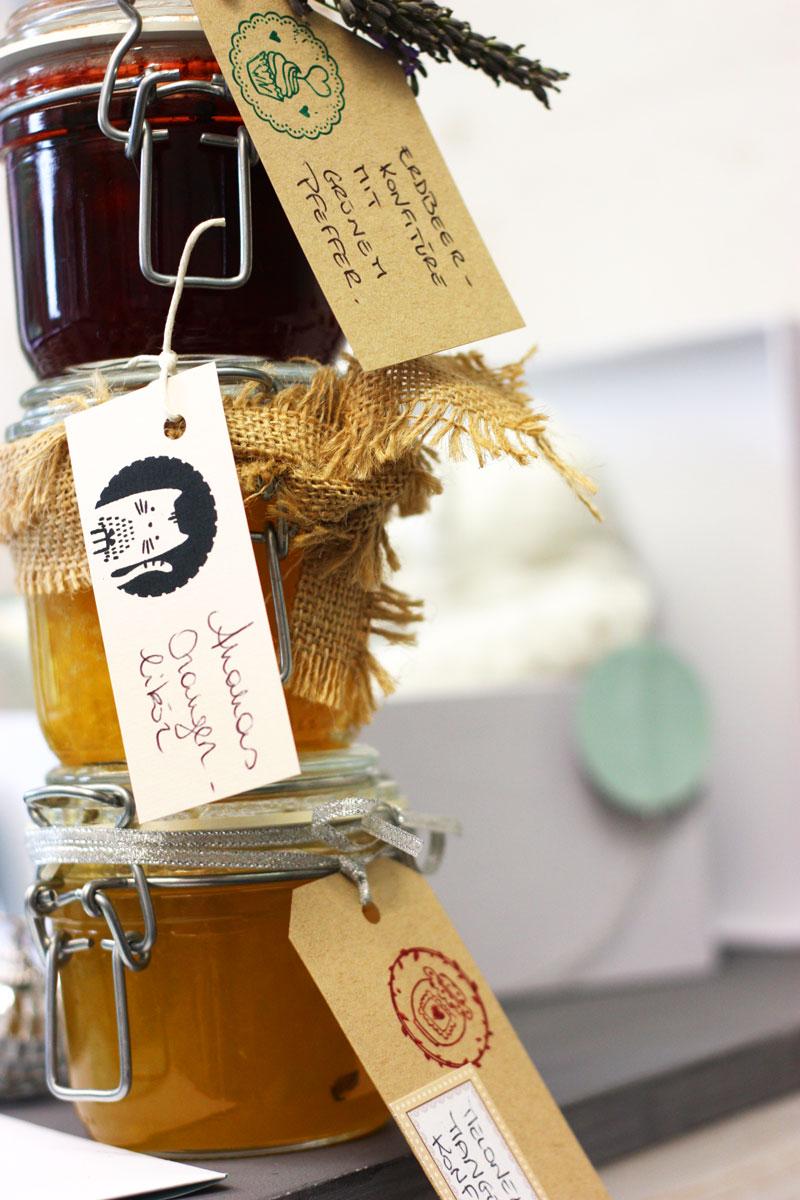 ERDBEER-
KONFITÜRE
MIT
GRÜNEM
PFEFFER.
Ananas
Orangen-
likör
MELONE
MANGO
KONF